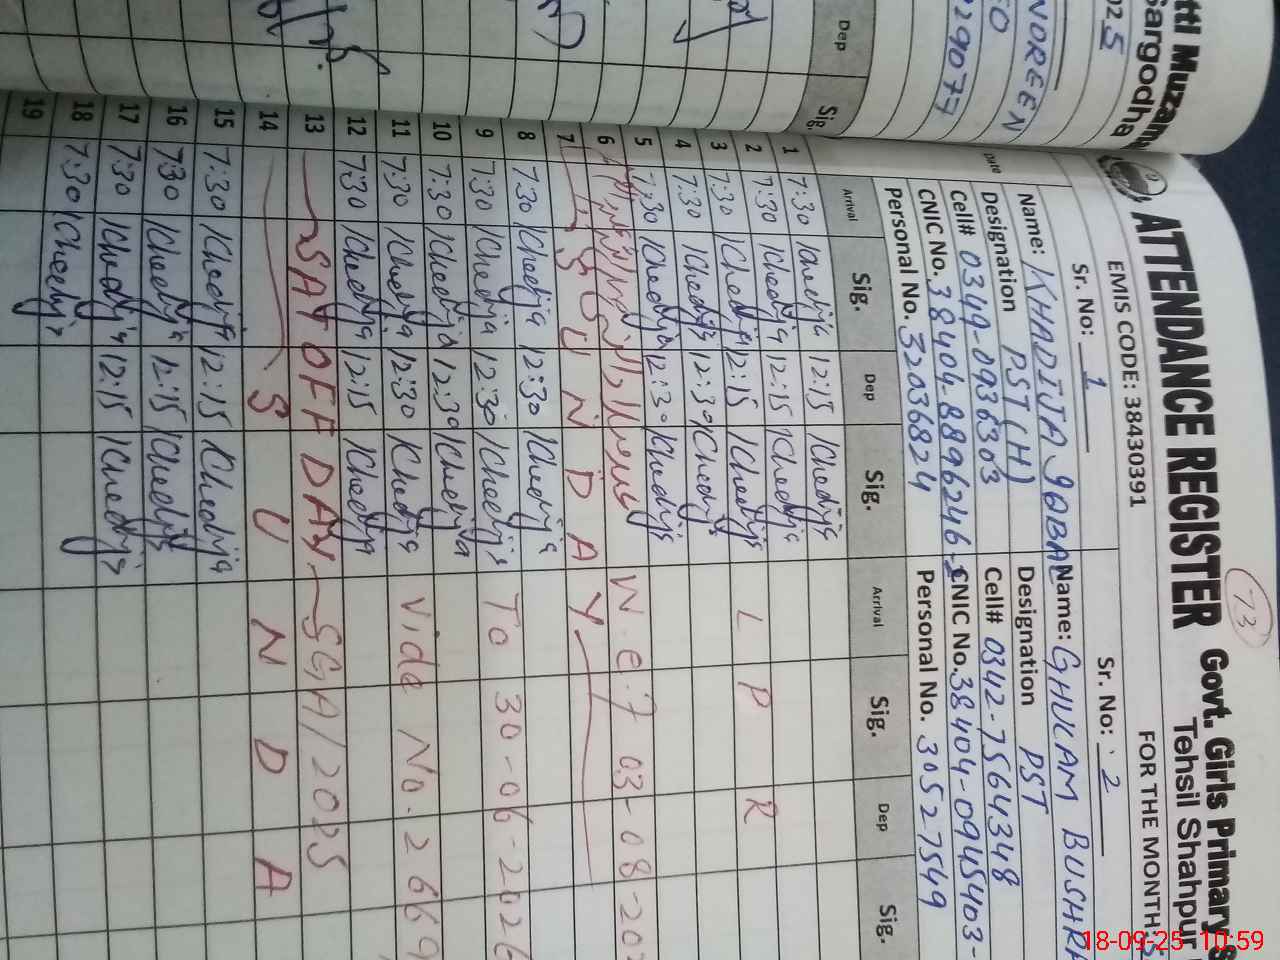 Sargodha
NOREEN
ATTENDANCE REGISTER Govt. Girls Primary
Tehsil Shahpur
EMIS CODE: 38430391
FOR THE MONTH:
73
Sr. No: 1
Name: KHADIJA
Designation PST (H)
Cell# 0349-0936303
CNIC No. 38404-8896246-
Personal No. 32036824
Sr. No: 2
Name: GHULAM BUSHRA
Designation PST
Cell# 0342-7564348
CNIC No. 38404-0945403-
Personal No. 30527549
Dep Sig.
Date Arrival Sig. Dep Sig. Arrival Sig. Dep Sig.
1 7:30 Khadija 12:15 Khadija
2 7:30 Khadija 12:15 Khadija L P R
3 7:30 Khadija 12:15 Khadija
4 7:30 Khadija 12:30 Khadija
5 7:30 Khadija 12:30 Khadija W.e.f 03-08-
6
7 SUNDAY
8 7:30 Khadija 12:30 Khadija
9 7:30 Khadija 12:30 Khadija To 30-06-2026
10 7:30 Khadija 12:30 Khadija
11 7:30 Khadija 12:30 Khadija Vide No. 2669
12 7:30 Khadija 12:15 Khadija
13 SAT OFF DAY SGA/2025
14 S U N D A
15 7:30 Khadija 12:15 Khadija
16 7:30 Khadija 12:15 Khadija
17 7:30 Khadija 12:15 Khadija
18 7:30 Khadija
19
18-09-25 10:59